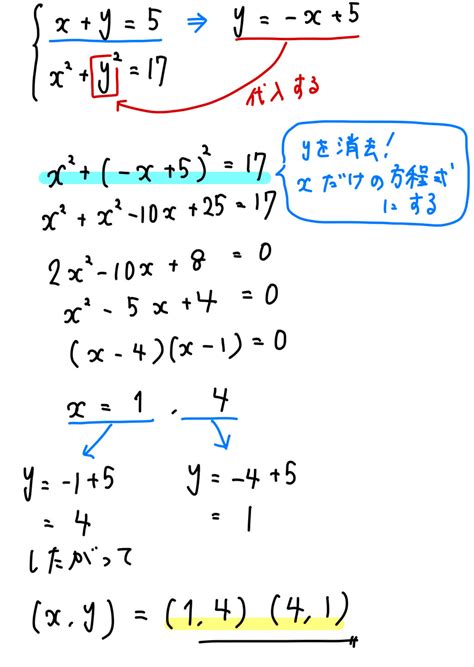 x + y = 5 ⇒ y = -x + 5
x² + y² = 17
代入する
x² + (-x + 5)² = 17
yを消去!
xだけの方程式
にする
x² + x² - 10x + 25 = 17
2x² - 10x + 8 = 0
x² - 5x + 4 = 0
(x - 4)(x - 1) = 0
x = 1 , 4
y = -1 + 5
= 4
y = -4 + 5
= 1
したがって
(x, y) = (1, 4) (4, 1)